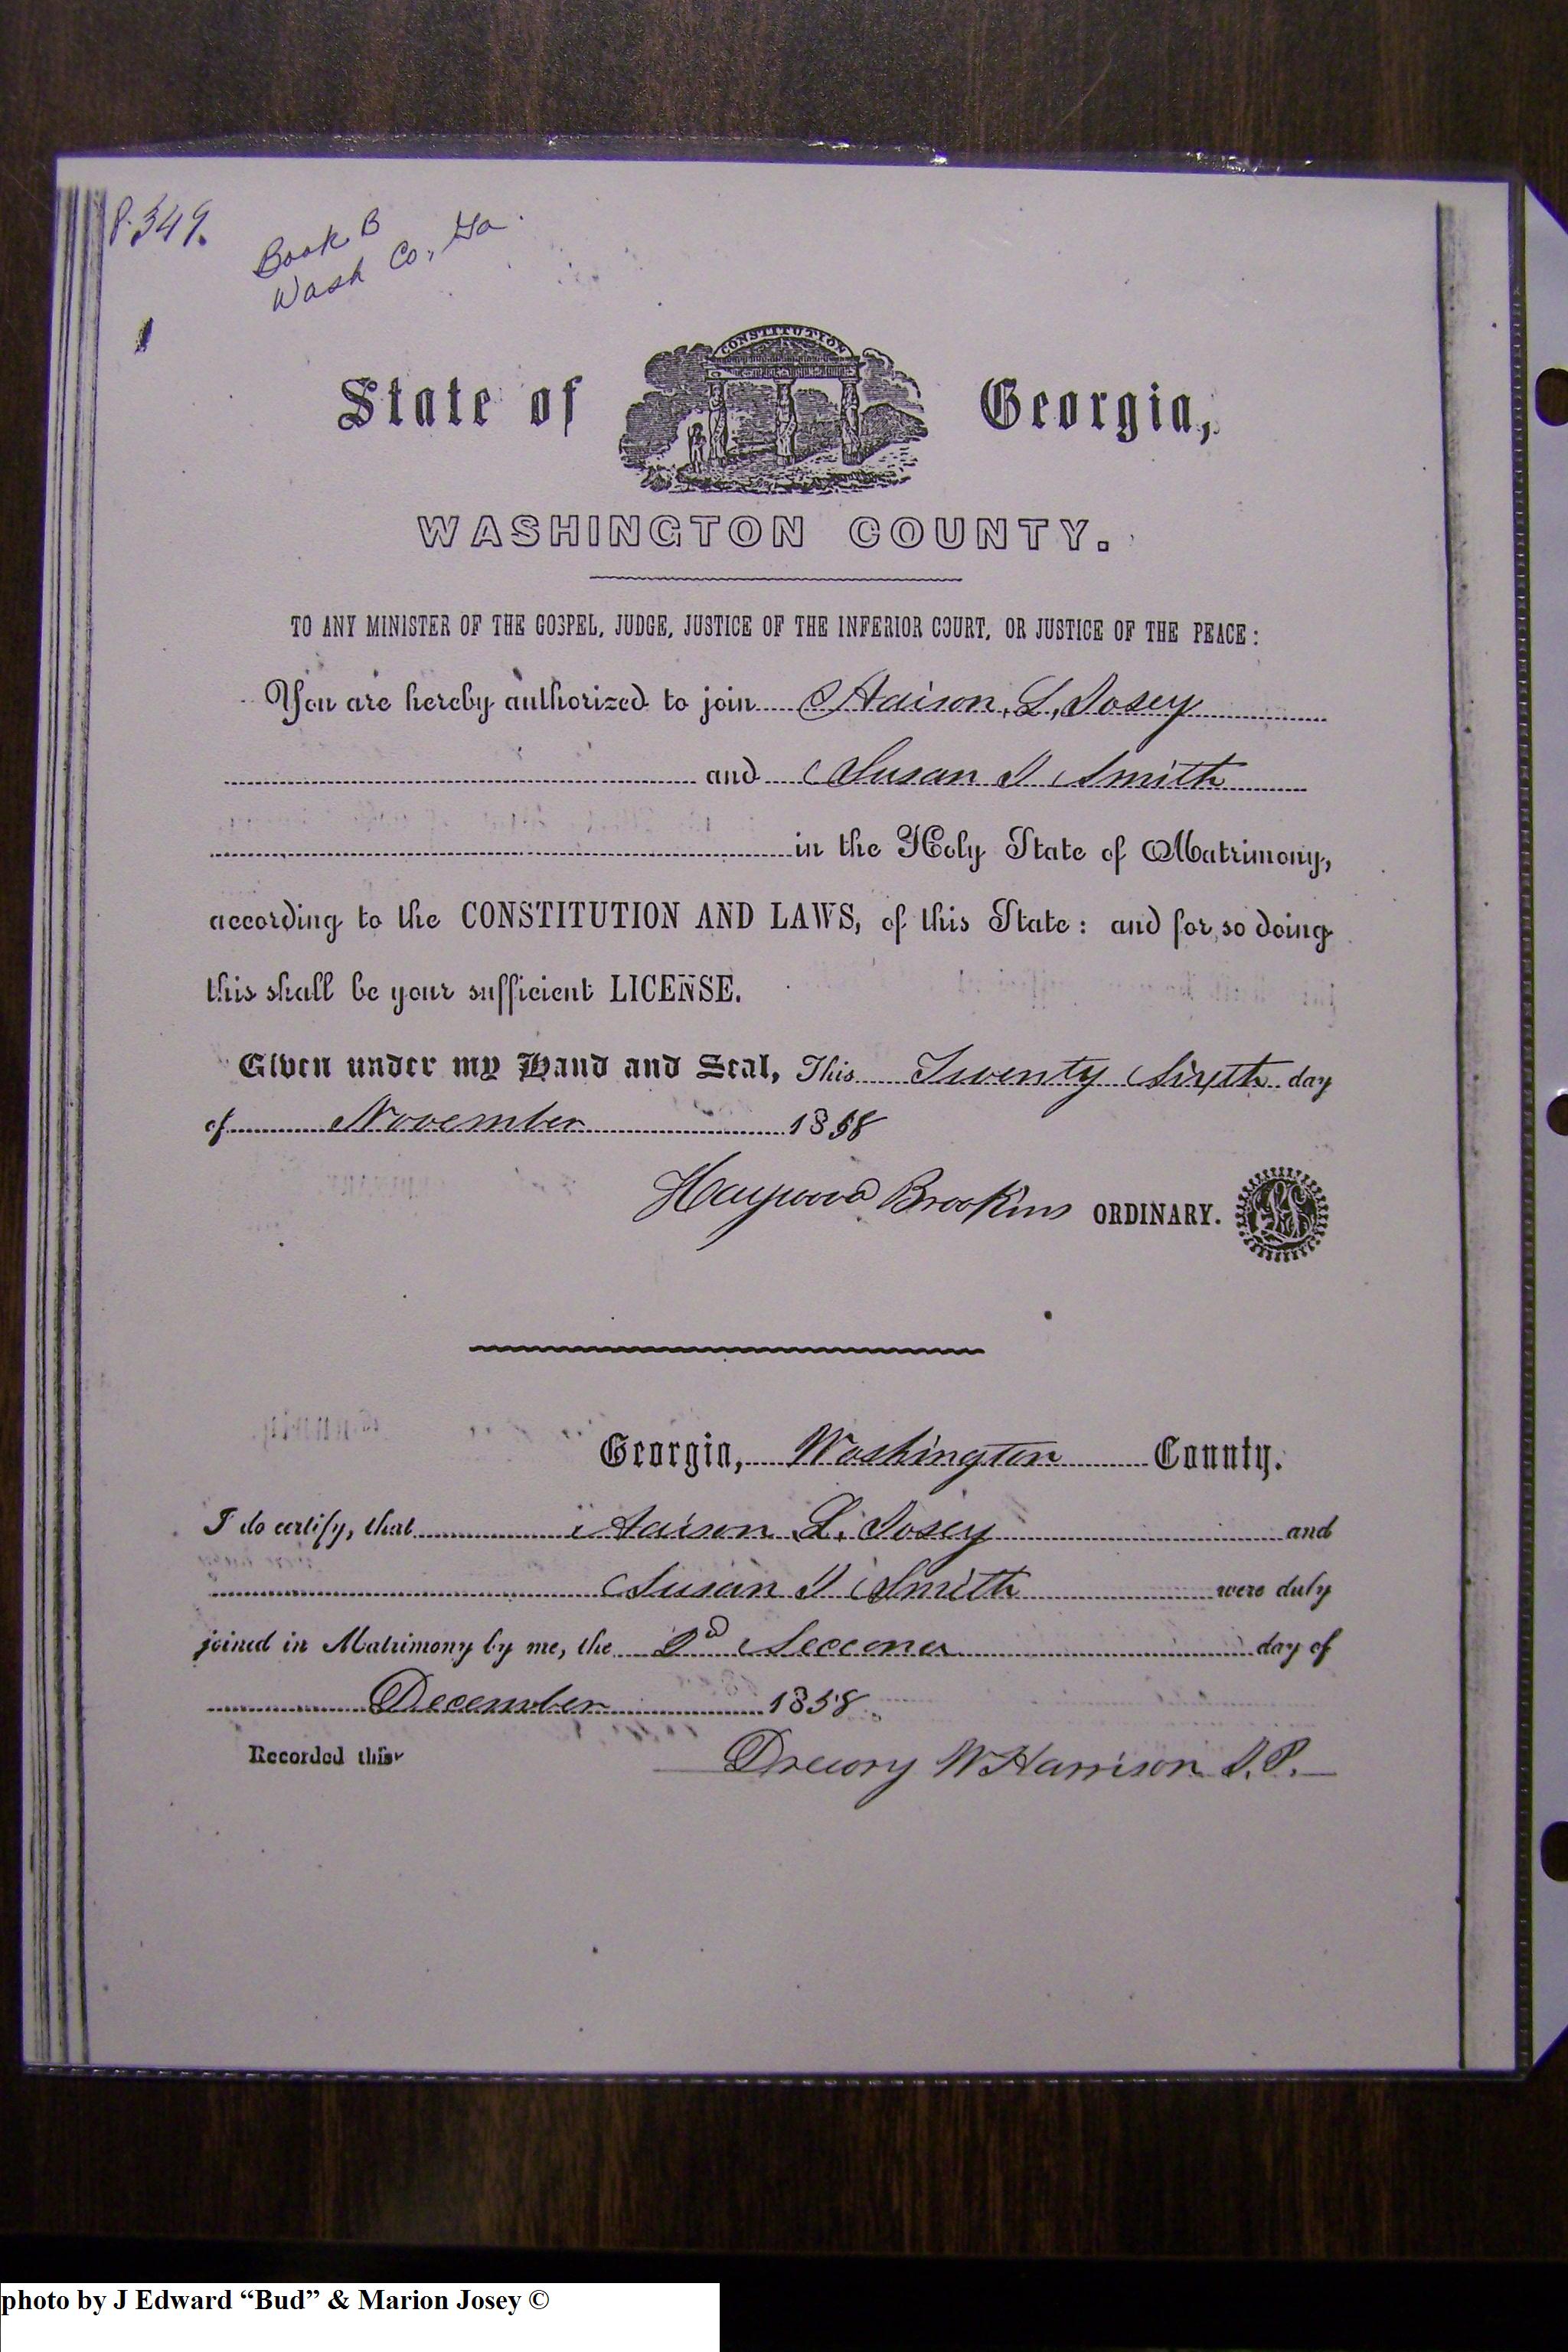 P. 349.
Book B
Wash Co, Ga.
CONSTITUTION
State of Georgia,
WASHINGTON COUNTY.
TO ANY MINISTER OF THE GOSPEL, JUDGE, JUSTICE OF THE INFERIOR COURT, OR JUSTICE OF THE PEACE:
You are hereby authorized to join L. Josey
and Susan J Smith
in the Holy State of Matrimony,
according to the CONSTITUTION AND LAWS, of this State: and for so doing
this shall be your sufficient LICENSE.
Given under my Hand and Seal, This Twenty Sixth day
of November 1858
Haywood Brookins ORDINARY. LS
Georgia, Washington County.
I do certify, that L. Josey and
Susan J Smith were duly
joined in Matrimony by me, the 2d day of
December 1858
Recorded this
Drewry W Harrison J. P.
photo by J Edward “Bud” & Marion Josey ©